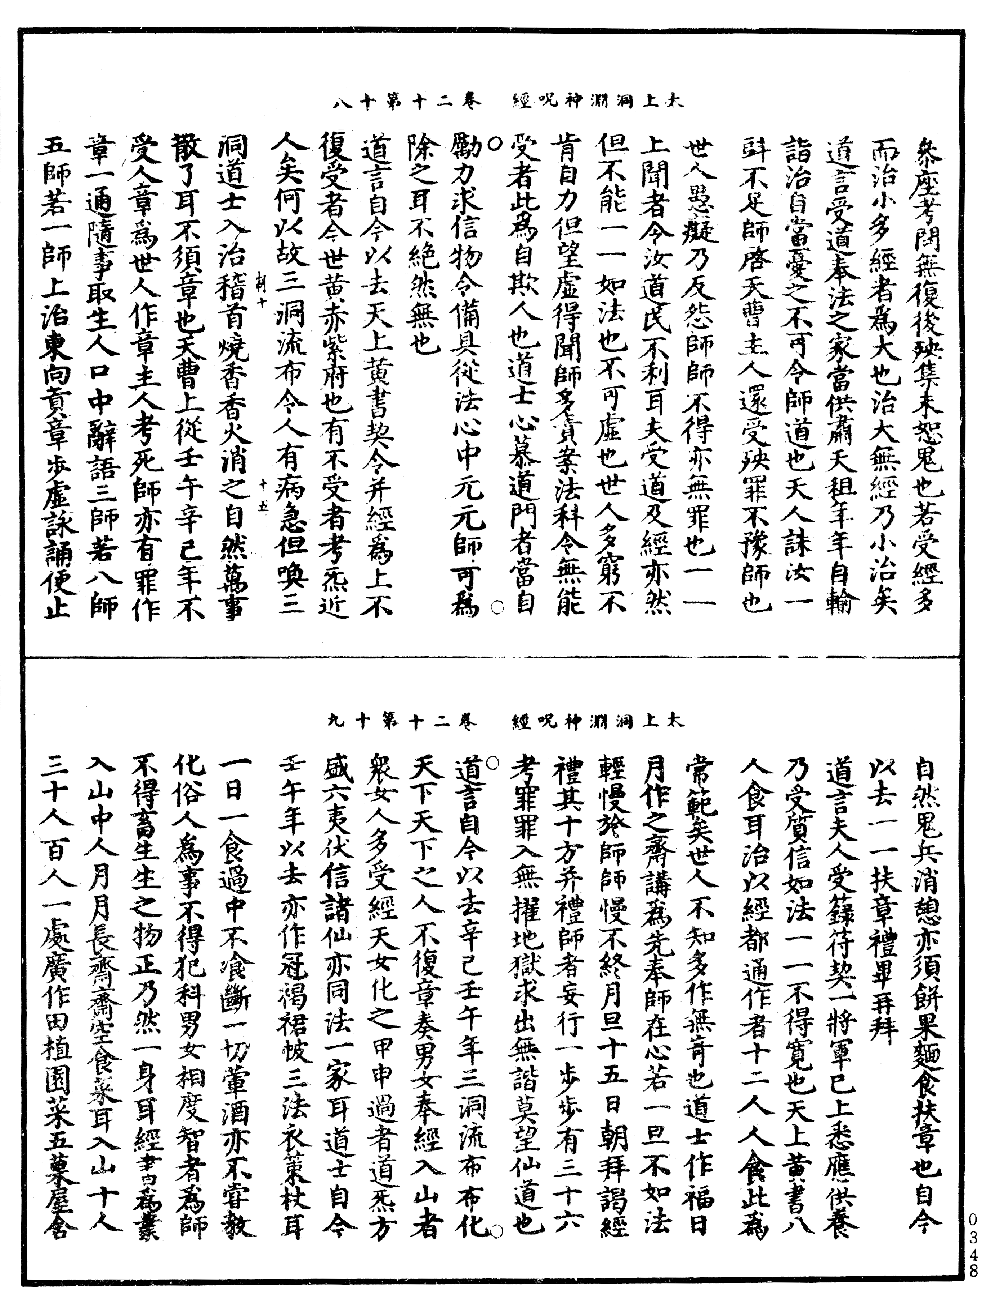 太上洞淵神呪經　卷二十第十八
叅座考閉無復後殃集末恕鬼也若受經多
而治小多經者為大也治大無經乃小治矣
道言受道奉法之家當供肅天租年年自輸
詣治自當憂之不可令師道也天人誅汝一
斛不足師啓天曹主人還受殃罪不豫師也
世人愚癡乃反怨師師不得亦無罪也一一
上聞者令汝道民不利耳夫受道及經亦然
但不能一一如法也不可虛也世人多窮不
肯自力但望虛得聞師多責案法科令無能
受者此為自欺人也道士心慕道門者當自
勵力求信物令備具從法心中元元師可為
除之耳不絕然無也
道言自今以去天上黃書契令并經為上不
復受者今世黃赤紫府也有不受者考炁近
人矣何以故三洞流布令人有病急但喚三
洞道士入治稽首燒香香火消之自然萬事
散了耳不須章也天曹上從壬午辛巳年不
受人章為世人作章主人考死師亦有罪作
章一通隨事取生人口中辭語三師若八師
五師若一師上治東向賷章步虛詠誦便止
太上洞淵神呪經　卷二十第十九
自然鬼兵消愬亦須餅果麵食扶章也自今
以去一一扶章禮畢再拜
道言夫人受籙符契一將軍已上悉應供養
乃受質信如法一一不得寬也天上黃書八
人食耳治以經都通作者十二人人食此為
常範矣世人不知多作無奇也道士作福日
月作之齋講為先奉師在心若一旦不如法
輕慢於師師慢不終月旦十五日朝拜謁經
禮其十方并禮師者妄行一步步有三十六
考罪罪入無擢地獄求出無諧莫望仙道也
道言自今以去辛巳壬午年三洞流布布化
天下天下之人不復章奏男女奉經入山者
衆女人多受經天女化之甲申過者道炁方
盛六夷伏信諸仙亦同法一家耳道士自今
壬午年以去亦作冠褐裙帔三法衣策杖耳
一日一食過中不飡斷一切葷酒亦不嘗教
化俗人為事不得犯科男女相度智者為師
不得畜生生之物正乃然一身耳經書為業
入山中人月月長齋齋空食菜耳入山十人
三十人百人一處廣作田植園菜五菓屋舍
0348